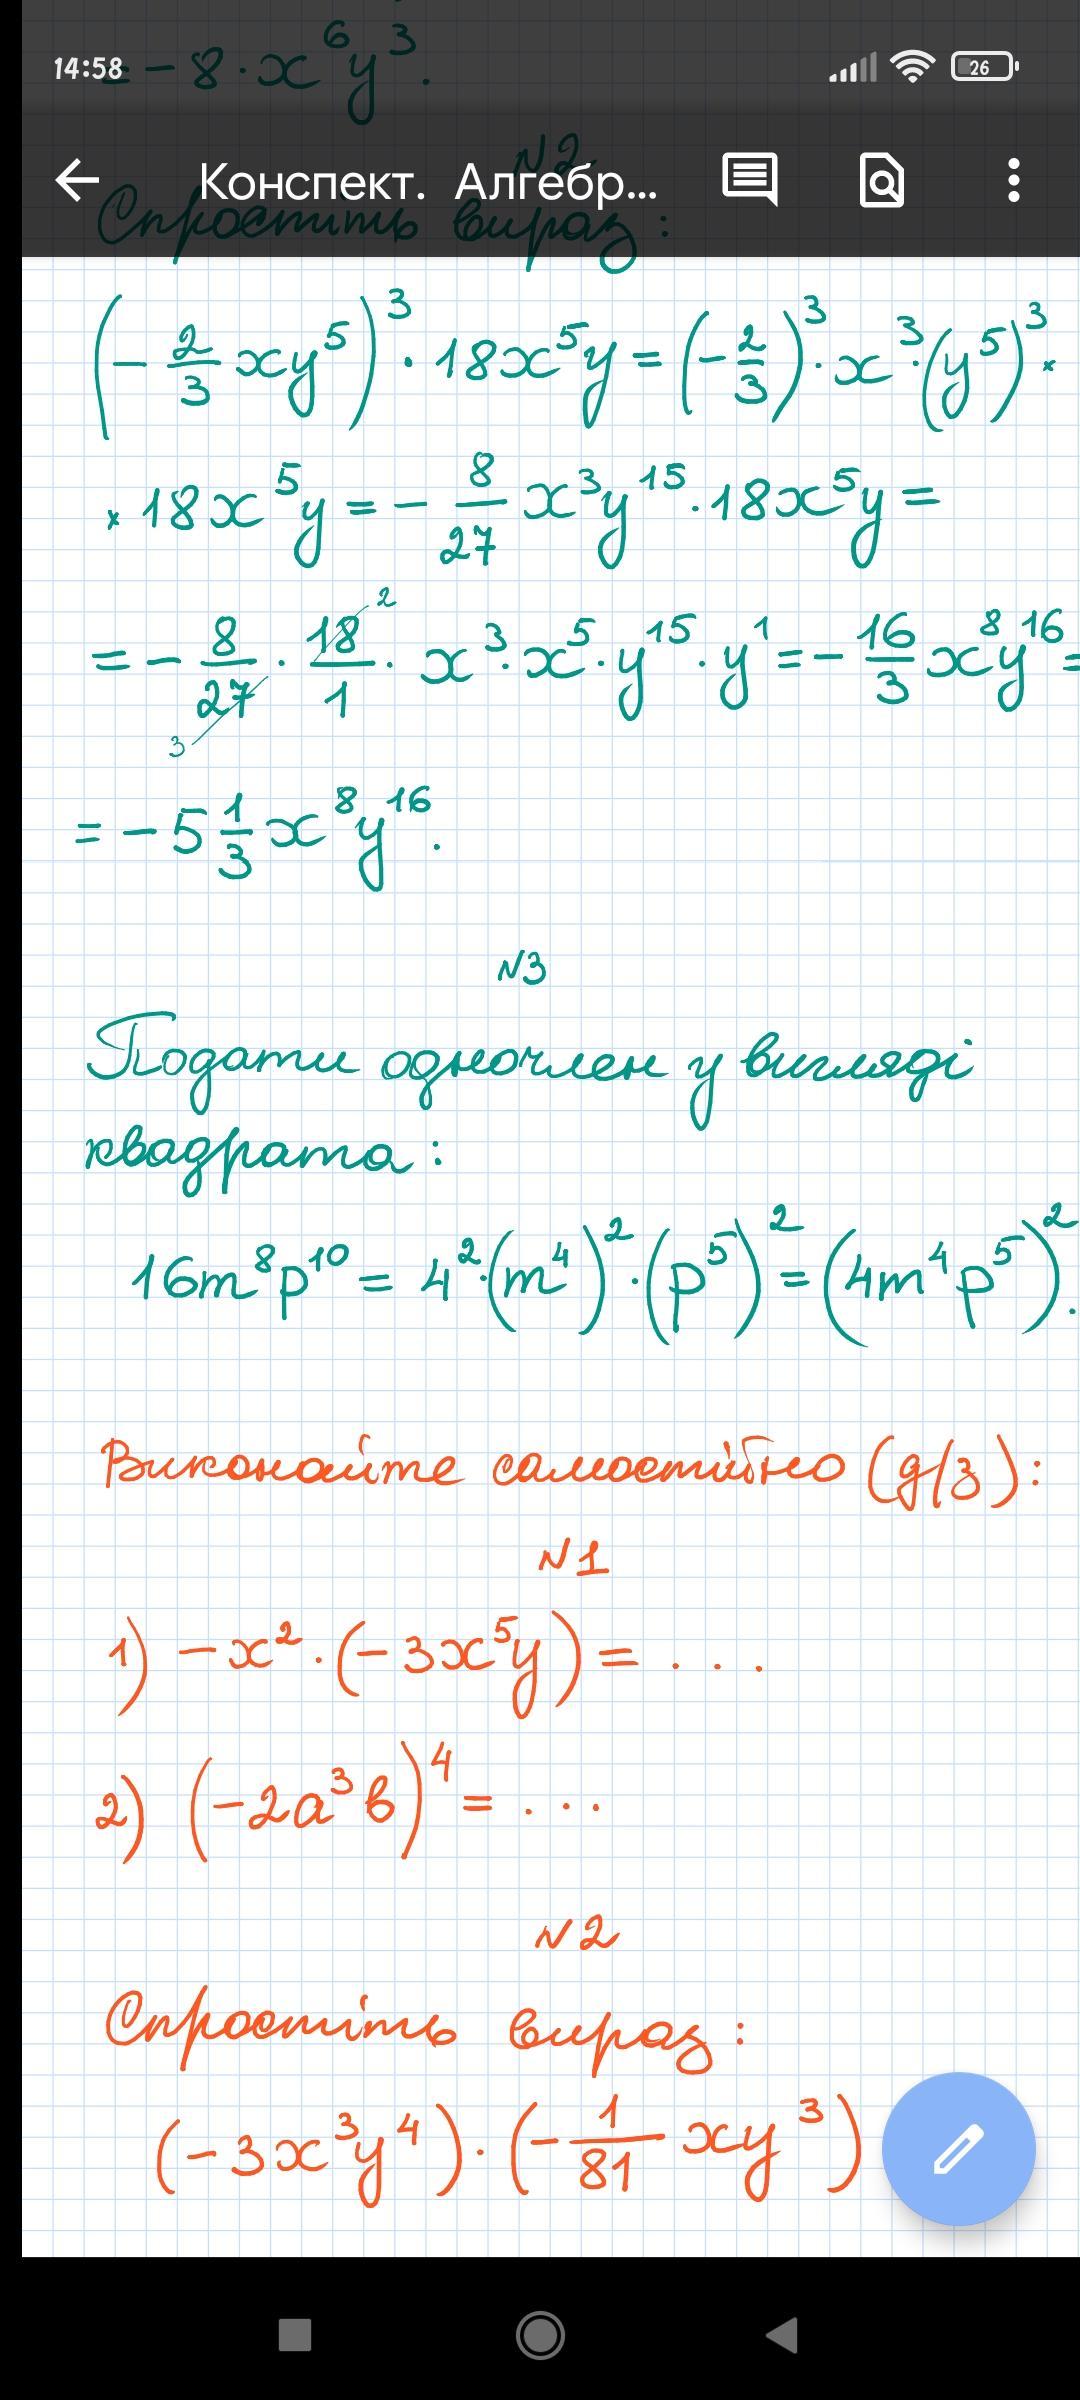 = -8·x⁶y³.
14:58 26
N2
Конспект. Алгебр...
Спростіть вираз:
(-2/3 xy⁵)³ · 18x⁵y = (-2/3)³ · x³ · (y⁵)³ ×
× 18x⁵y = - 8/27 x³y¹⁵ · 18x⁵y =
= - 8/27 · 18/1 · x³ · x⁵ · y¹⁵ · y¹ = - 16/3 x⁸y¹⁶ =
= -5 1/3 x⁸y¹⁶.
N3
Подати одночлен у вигляді
квадрата:
16m⁸p¹⁰ = 4² · (m⁴)² · (p⁵)² = (4m⁴p⁵)².
Виконайте самостійно (д/з):
N1
1) -x² · (-3x⁵y) = ...
2) (-2a³b)⁴ = ...
N2
Спростіть вираз:
(-3x³y⁴) · (- 1/81 xy³)